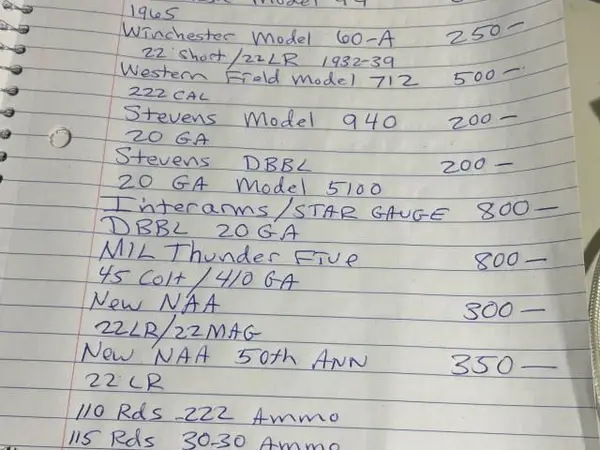 1965
Winchester Model 60-A 250-
22 Short/22LR 1932-39
Western Field Model 712 500-
222 CAL
Stevens Model 940 200-
20 GA
Stevens DBBL 200-
20 GA Model 5100
Interarms/STAR GAUGE 800-
DBBL 20 GA
MIL Thunder Five 800-
45 Colt/410 GA
New NAA 300-
22LR/22MAG
New NAA 50th ANN 350-
22 LR
110 Rds .222 Ammo
115 Rds 30-30 Ammo